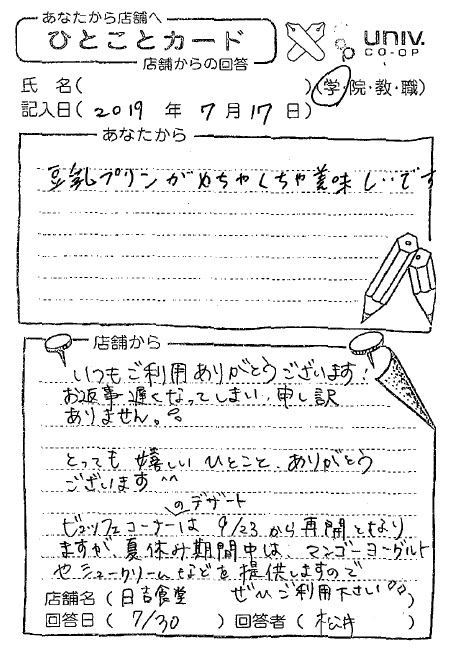 あなたから店舗へ
ひとことカード
店舗からの回答
univ.
CO-OP
氏 名( ) (学・院・教・職)
記入日( 2019 年 7 月 17 日)
あなたから
豆乳プリンがめちゃくちゃ美味しいです
店舗から
いつもご利用ありがとうございます!
お返事遅くなってしまい、申し訳
ありません。
とっても嬉しいひとこと、ありがとう
ございます^^
のデザート
ビュッフェコーナーは 9/23 から再開となり
ますが、夏休み期間中は、マンゴーヨーグルト
やシュークリームなどを提供しますので
ぜひご利用下さい
店舗名 ( 日吉食堂 )
回答日 ( 7/30 ) 回答者 ( 松井 )